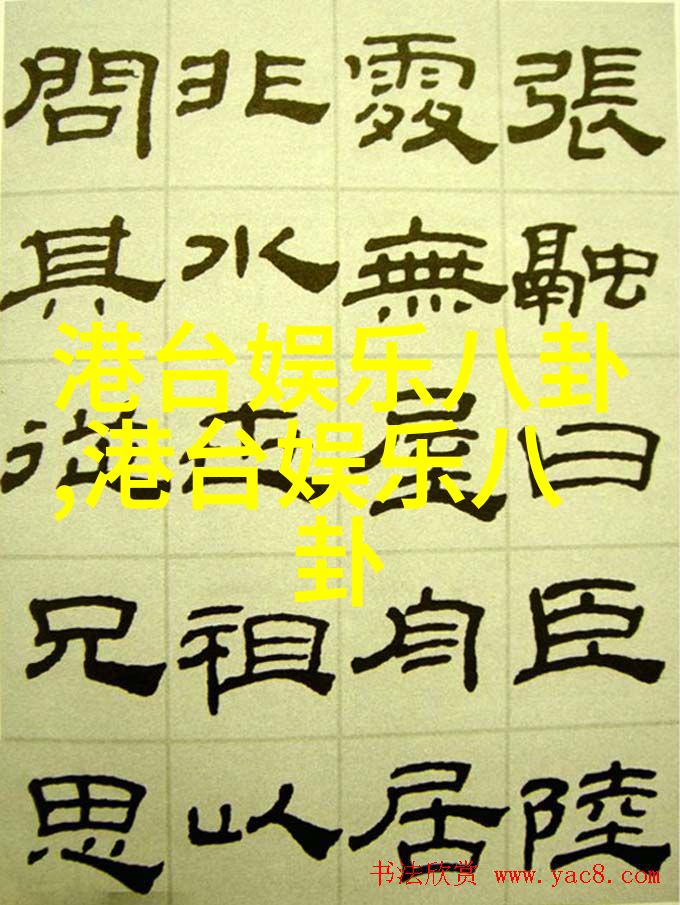 張融曰臣陸
處無屋舟居
非水祖以
問其從兄思
港台娱乐八卦
,港台娱乐八
卦
书法欣赏 www.yac8.com